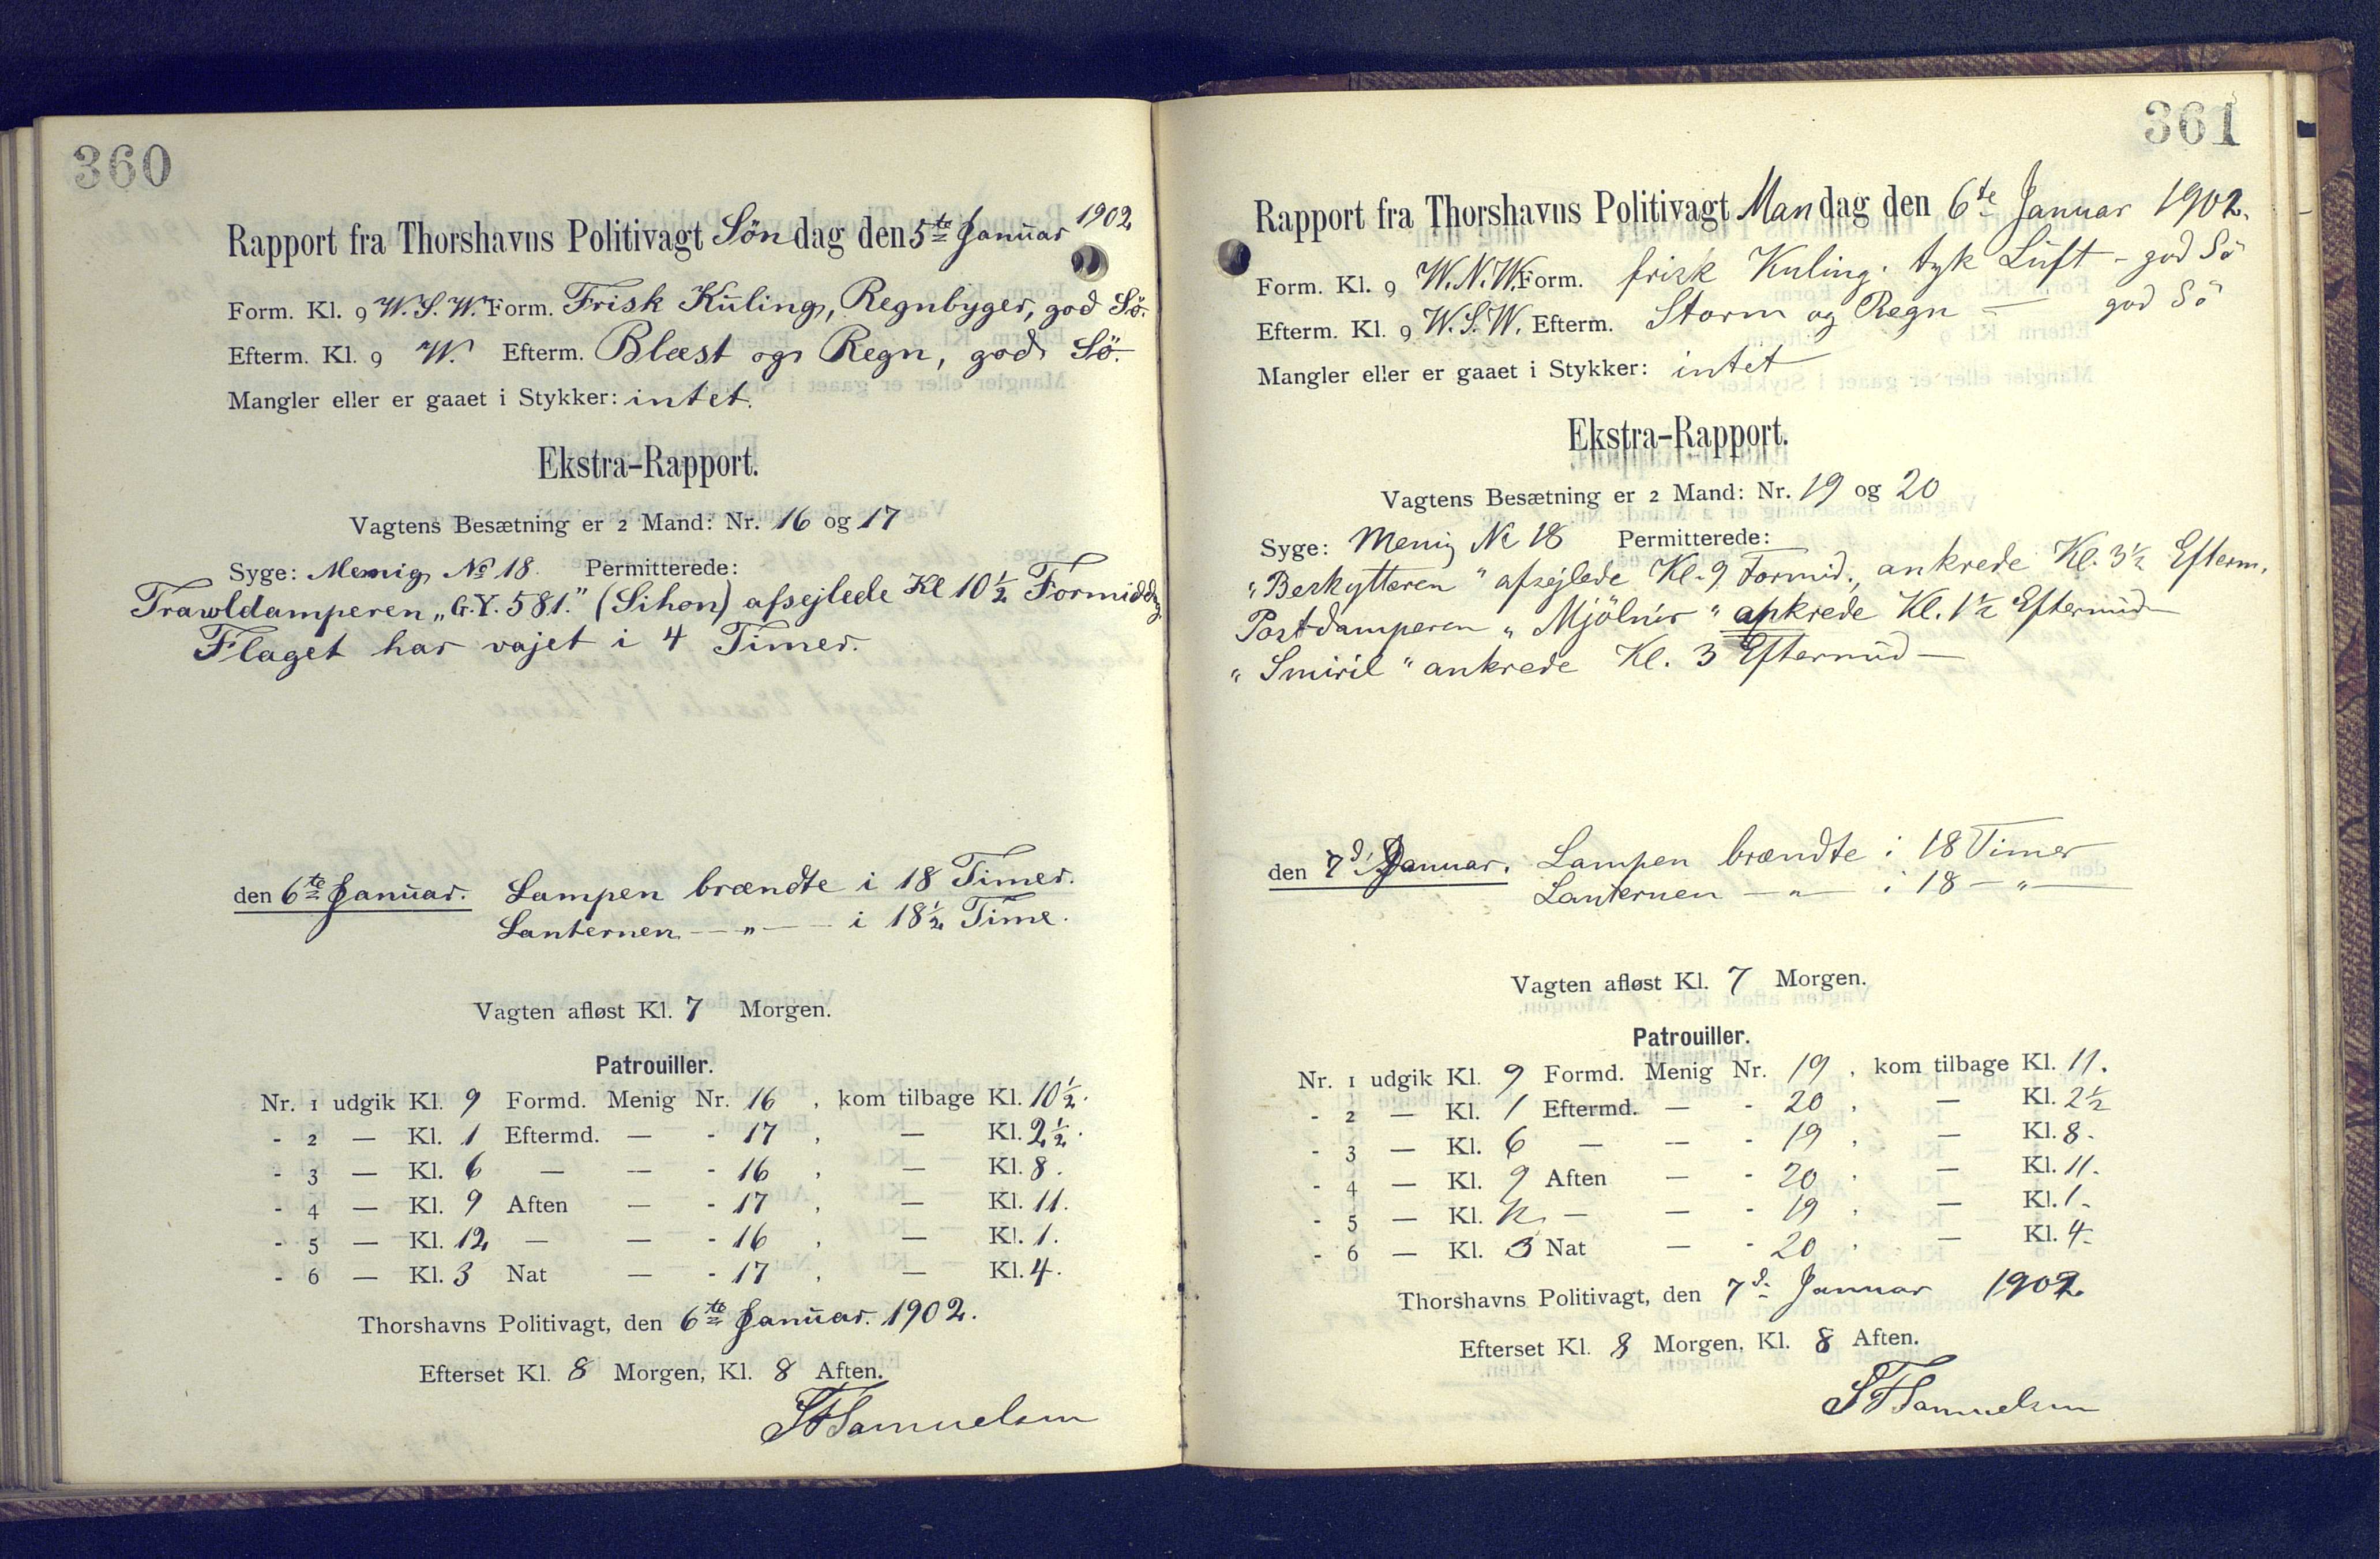 360
Rapport fra Thorshavns Politivagt Søndag den 5te Januar 1902
Form. Kl. 9 W.S.W. Form. Frisk Kuling, Regnbyger, god Sö.
Efterm. Kl. 9 W. Efterm. Blæst og Regn, god Sö.
Mangler eller er gaaet i Stykker: intet.
Ekstra-Rapport.
Vagtens Besætning er 2 Mand: Nr. 16 og 17
Syge: Menig No 18. Permitterede:
Trawldamperen „G.Y. 581." (Sihon) afsejlede Kl 10½ Formiddag.
Flaget har vajet i 4 Timer.
den 6te Januar. Lampen brændte i 18 Timer.
Lanternen — „ — i 18½ Time.
Vagten afløst Kl. 7 Morgen.
Patrouiller.
Nr. 1 udgik Kl. 9 Formd. Menig Nr. 16, kom tilbage Kl. 10½.
- 2 — Kl. 1 Eftermd. — - 17, — Kl. 2½.
- 3 — Kl. 6 — — - 16, — Kl. 8.
- 4 — Kl. 9 Aften — - 17, — Kl. 11.
- 5 — Kl. 12 — — - 16, — Kl. 1.
- 6 — Kl. 3 Nat — - 17, — Kl. 4.
Thorshavns Politivagt, den 6te Januar. 1902.
Efterset Kl. 8 Morgen, Kl. 8 Aften.
SFSamuelsen
361
Rapport fra Thorshavns Politivagt Mandag den 6te Januar 1902.
Form. Kl. 9 W.N.W. Form. frisk Kuling. tyk Luft - god Sö
Efterm. Kl. 9 W.S.W. Efterm. Storm og Regn — god Sö
Mangler eller er gaaet i Stykker: intet
Ekstra-Rapport.
Vagtens Besætning er 2 Mand: Nr. 19 og 20
Syge: Menig No 18 Permitterede:
„Beskytteren" afsejlede Kl. 9 Formid., ankrede Kl. 3½ Efterm.
Postdamperen „Mjölnir" ankrede Kl. 1½ Eftermid—
„Smiril" ankrede Kl. 3 Eftermid—
den 7d Januar. Lampen brændte i 18 Timer
Lanternen — „ — i 18 — „ —
Vagten afløst Kl. 7 Morgen.
Patrouiller.
Nr. 1 udgik Kl. 9 Formd. Menig Nr. 19, kom tilbage Kl. 11.
- 2 — Kl. 1 Eftermd. — - 20, — Kl. 2½
- 3 — Kl. 6 — — - 19, — Kl. 8.
- 4 — Kl. 9 Aften — - 20, — Kl. 11.
- 5 — Kl. 12 — — - 19, — Kl. 1.
- 6 — Kl. 3 Nat — - 20, — Kl. 4.
Thorshavns Politivagt, den 7d. Januar 1902.
Efterset Kl. 8 Morgen, Kl. 8 Aften.
SFSamuelsen